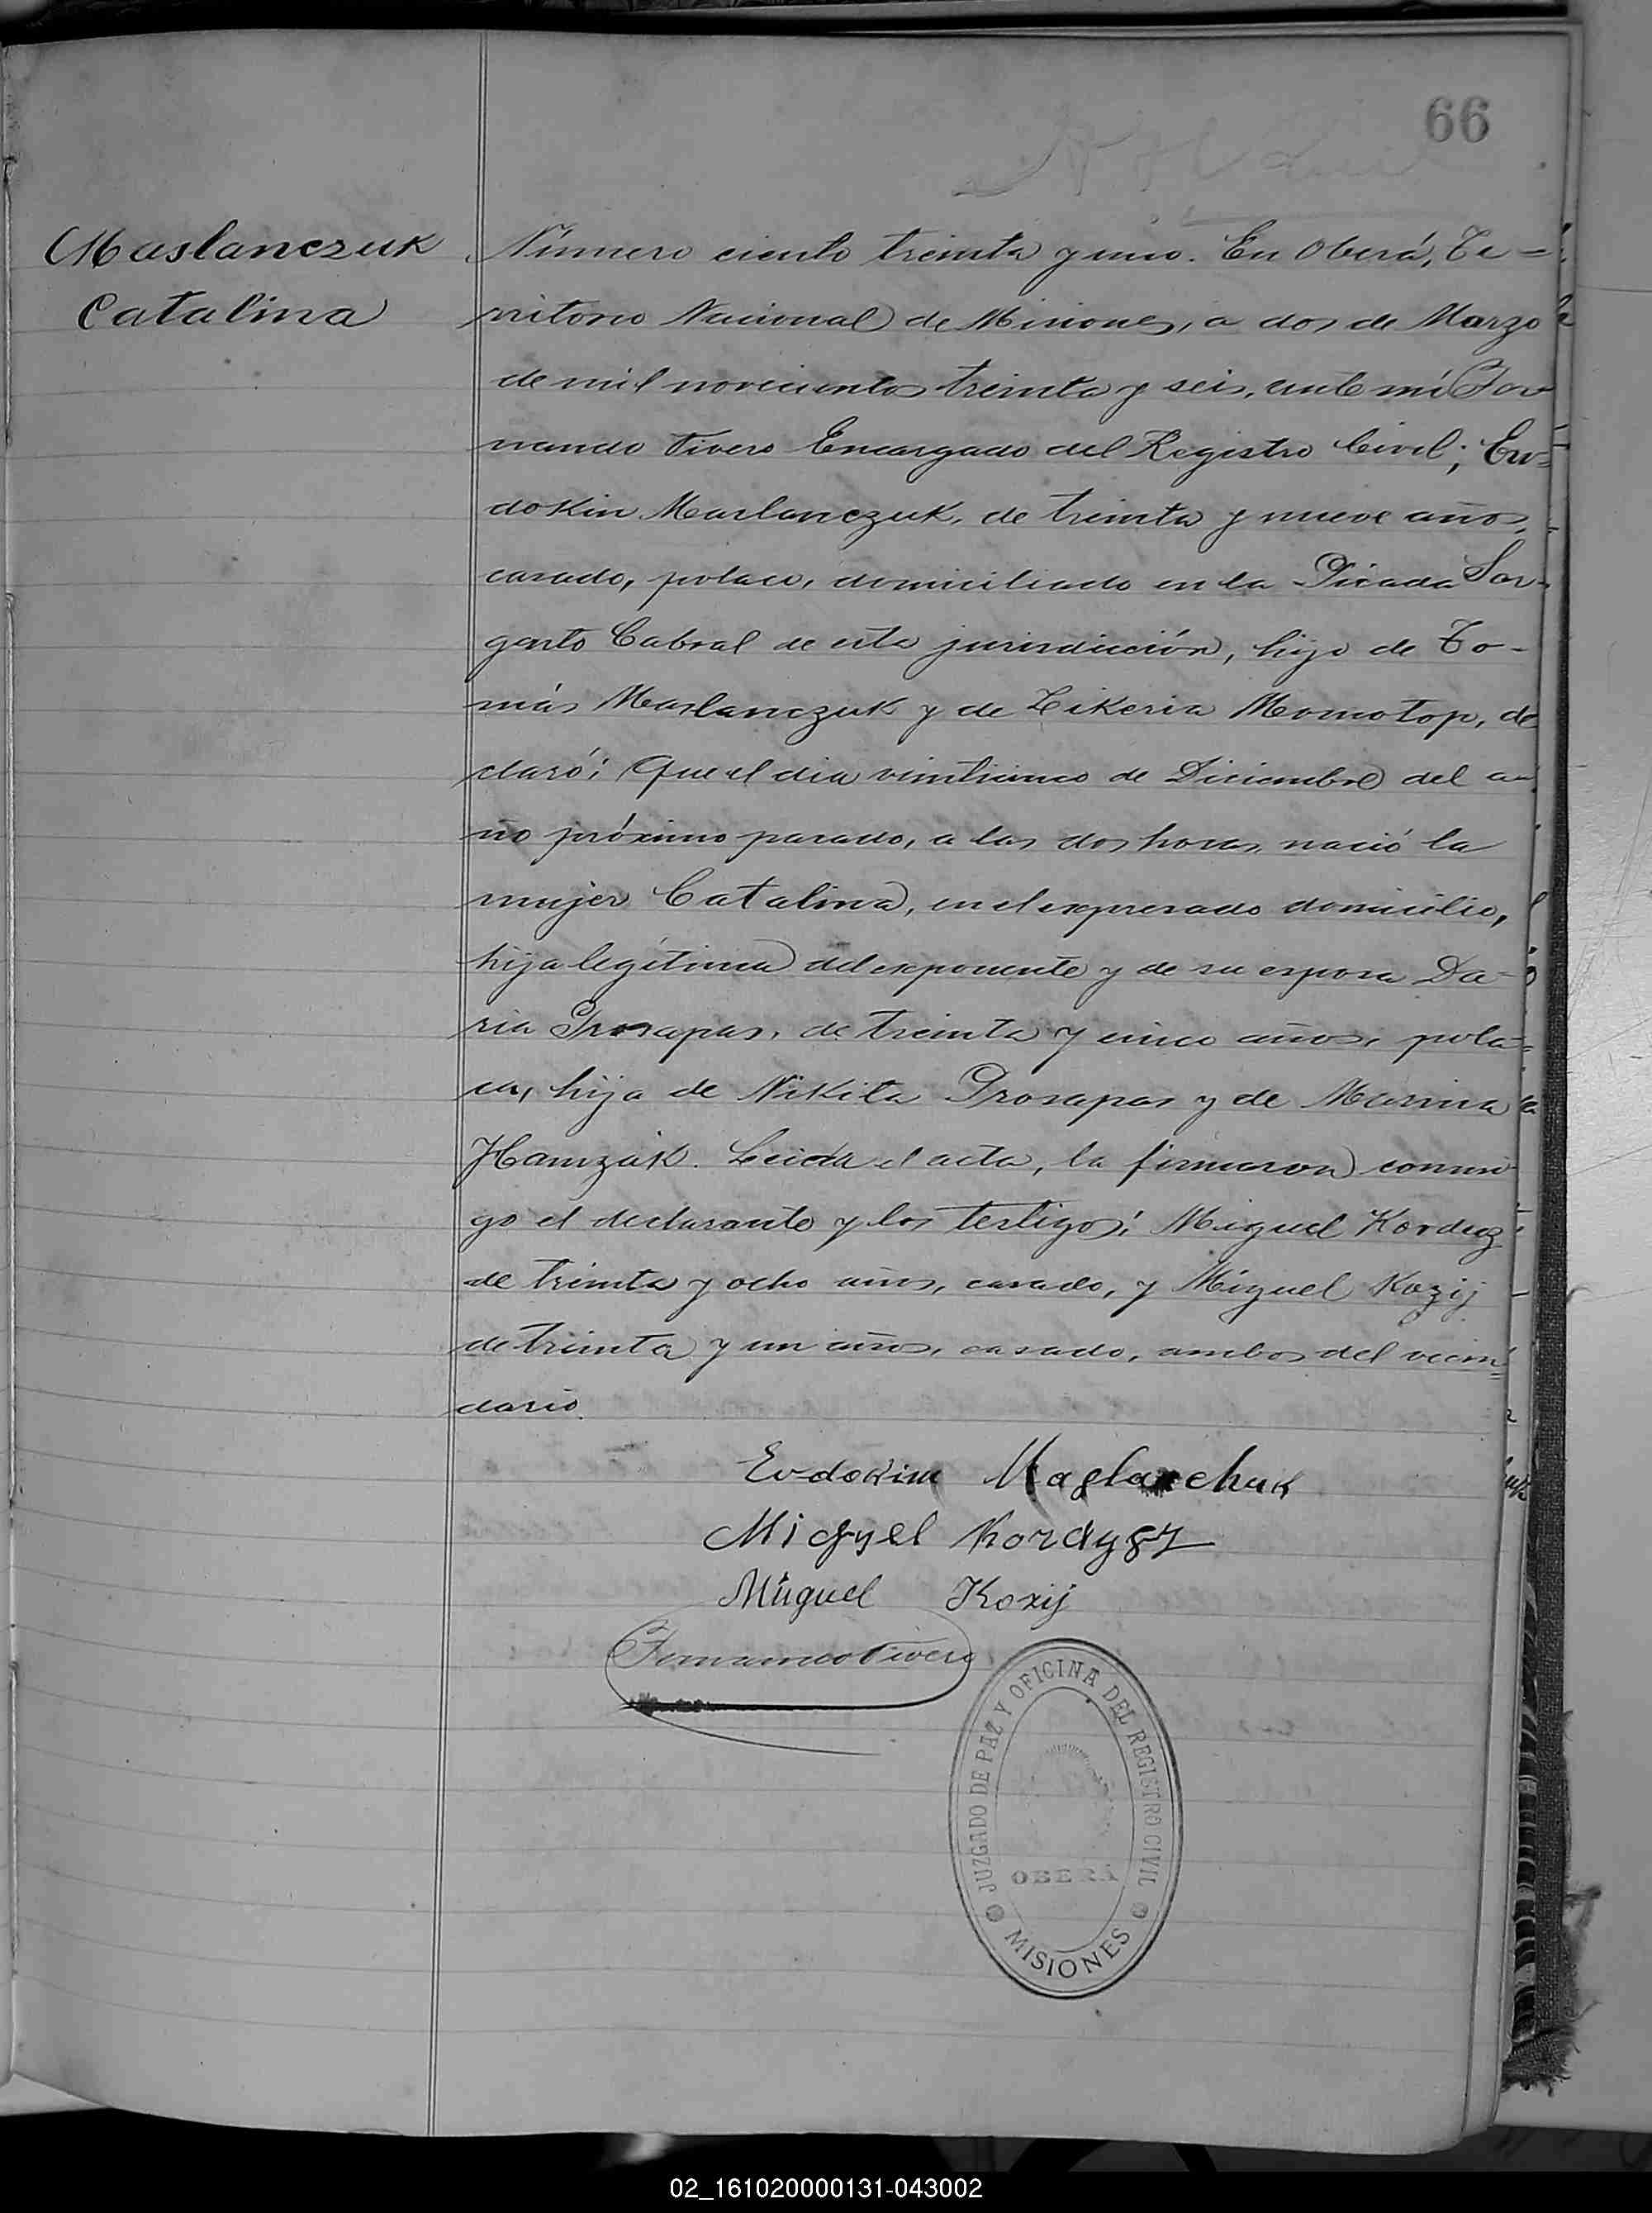 66
Maslanczuk
Catalina
Número ciento treinta y uno. En Oberá, Te=
rritorio Nacional de Misiones, a dos de Marzo
de mil novecientos treinta y seis, ante mí Fer
nando Tivero Encargado del Registro Civil; Ev=
dokin Maslanczuk, de treinta y nueve años,
casado, polaco, domiciliado en la Picada Sar-
gento Cabral de esta jurisdicción, hijo de To-
más Maslanczuk y de Likeria Momotop, de
claró: Que el dia veinticinco de Diciembre del a
ño próximo pasado, a las dos horas, nació la
mujer Catalina, en el expresado domicilio,
hija legítima del exponente y de su esposa Da-
ria Prosapas, de treinta y cinco años, pola=
ca, hija de Nikita Prosapas y de Marina
Hamzuk. Leida el acta, la firmaron conmi
go el declarante y los testigos: Miguel Korduz
de treinta y ocho años, casado, y Miguel Kozij
de treinta y un años, casado, ambos del vecin=
dario.
Evdokim Maslanchuk
Miguel
Miguel Kozij
Fernando Tivero
JUZGADO DE PAZ Y OFICINA DEL REGISTRO CIVIL
OBERÁ
MISIONES
02_161020000131-043002